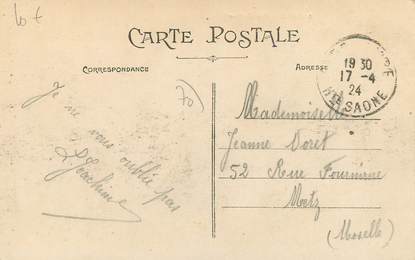 10 €
CARTE POSTALE
CORRESPONDANCE
ADRESSE
70
Je ne vous oublie pas
Joachim
19 30
17-4
24
Hte SAONE
Mademoiselle
Jeanne Voret
52 Rue Fournirue
Metz
(Moselle)